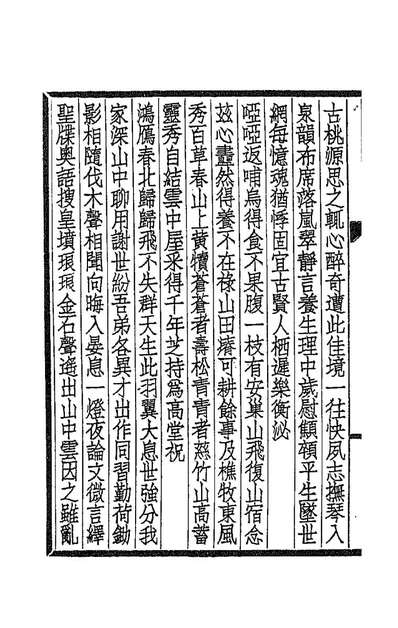 古桃源思之輒心醉奇遭此佳境一往快夙志撫琴入
泉韻布席落嵐翠靜言養生理中歲慰顦顇平生墜世
網每憶魂猶悸固宜古賢人栖遲樂衡泌
啞啞返哺烏得食不果腹一枝有安巢山飛復山宿念
茲心盡然得養不在祿山田瘠可耕餘事及樵牧東風
秀百草春山上黄犢蒼蒼者壽松青青者慈竹山高蓄
靈秀自結雲中屋采得千年芝持爲高堂祝
鴻鴈春北歸歸飛不失群天生此羽翼大息世強分我
家深山中聊用謝世紛吾弟各異才出作同習勤荷鋤
影相隨伐木聲相聞向晦入晏息一燈夜論文微言繹
聖牒奥語搜皇墳琅琅金石聲遙出山中雲因之雖亂